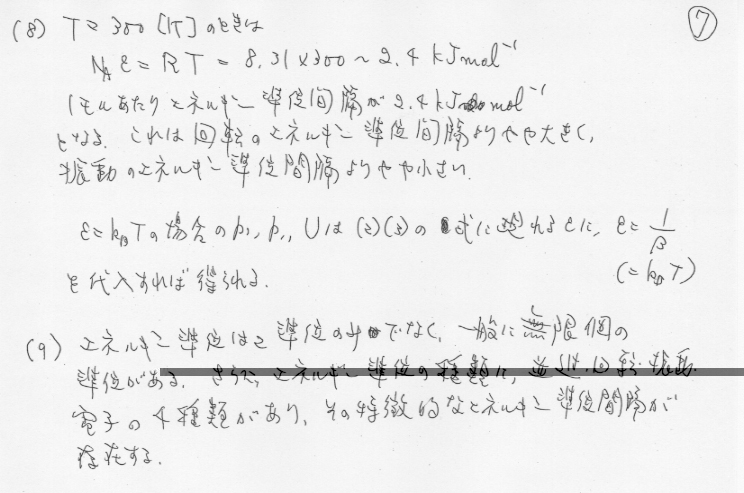 ⑦
(8) T = 300 [K] のときは
N_A ε = RT = 8.31×300 ~ 2.4 kJmol⁻¹
1モルあたりエネルギー準位間隔が2.4kJmol⁻¹
となる。これは回転のエネルギー準位間隔よりやや大きく、
振動のエネルギー準位間隔よりやや小さい.
ε=k_BTの場合のp₀, p₁, Uは(2)(3)の式に ε = 1/β
(= k_BT)
を代入すれば得られる.
(9) エネルギー準位は2準位のみでなく、一般に無限個の
準位がある. さらに、エネルギー準位の種類に, 並進・回転・振動・
電子の4種類があり、その特徴的なエネルギー準位間隔が
存在する.